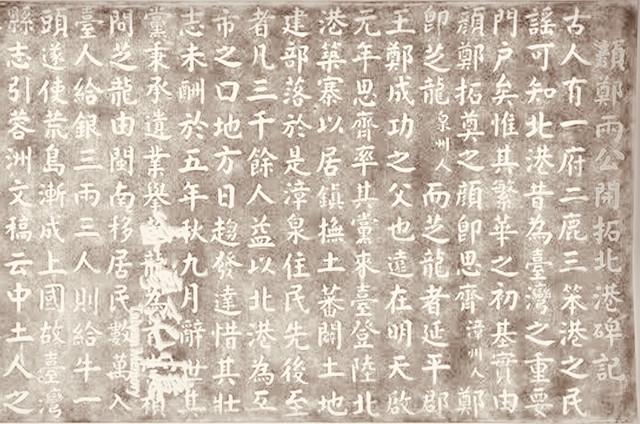 顏鄭兩公開拓北港碑記
古人有一府二鹿三笨港之民
謠可知北港昔為臺灣之重要
門户矣惟其繁華之初基實由
顏鄭拓奠之顏即思齊漳州人鄭
即芝龍泉州人而芝龍者延平郡
王鄭成功之父也遠在明天啟
元年思齊率其黨來臺登陸北
港築寨以居鎮撫土蕃闢土地
建部落於是漳泉住民先後至
者凡三千餘人益以北港為互
市之口地方日趨發達惜其壯
志未酬於五年秋九月辭世其
黨秉承遺業舉龍為禎
間芝龍由閩南移居民數萬入
臺人給銀三兩三人則給牛一
頭遂使荒島漸成上國故臺灣
縣志引蓉洲文稿云中土人之